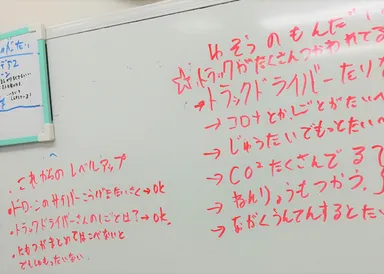 ゆそうのもんだい
☆トラックがたくさんつかわれてる
→トラックドライバーたりな
→コロナとか、しごとがたいへ
→じゅうたいでもっとたいへ
→CO²たくさんでるて
→ねんりょうもつかう、
→ながくうんてんするとたい
・これからのレベルアップ
・ドローンのサイバーこうげきたいさく→ok
・トラックドライバーさんのしごとは?→ok
・にもつがまとめてはこべないと
でんしもったいない